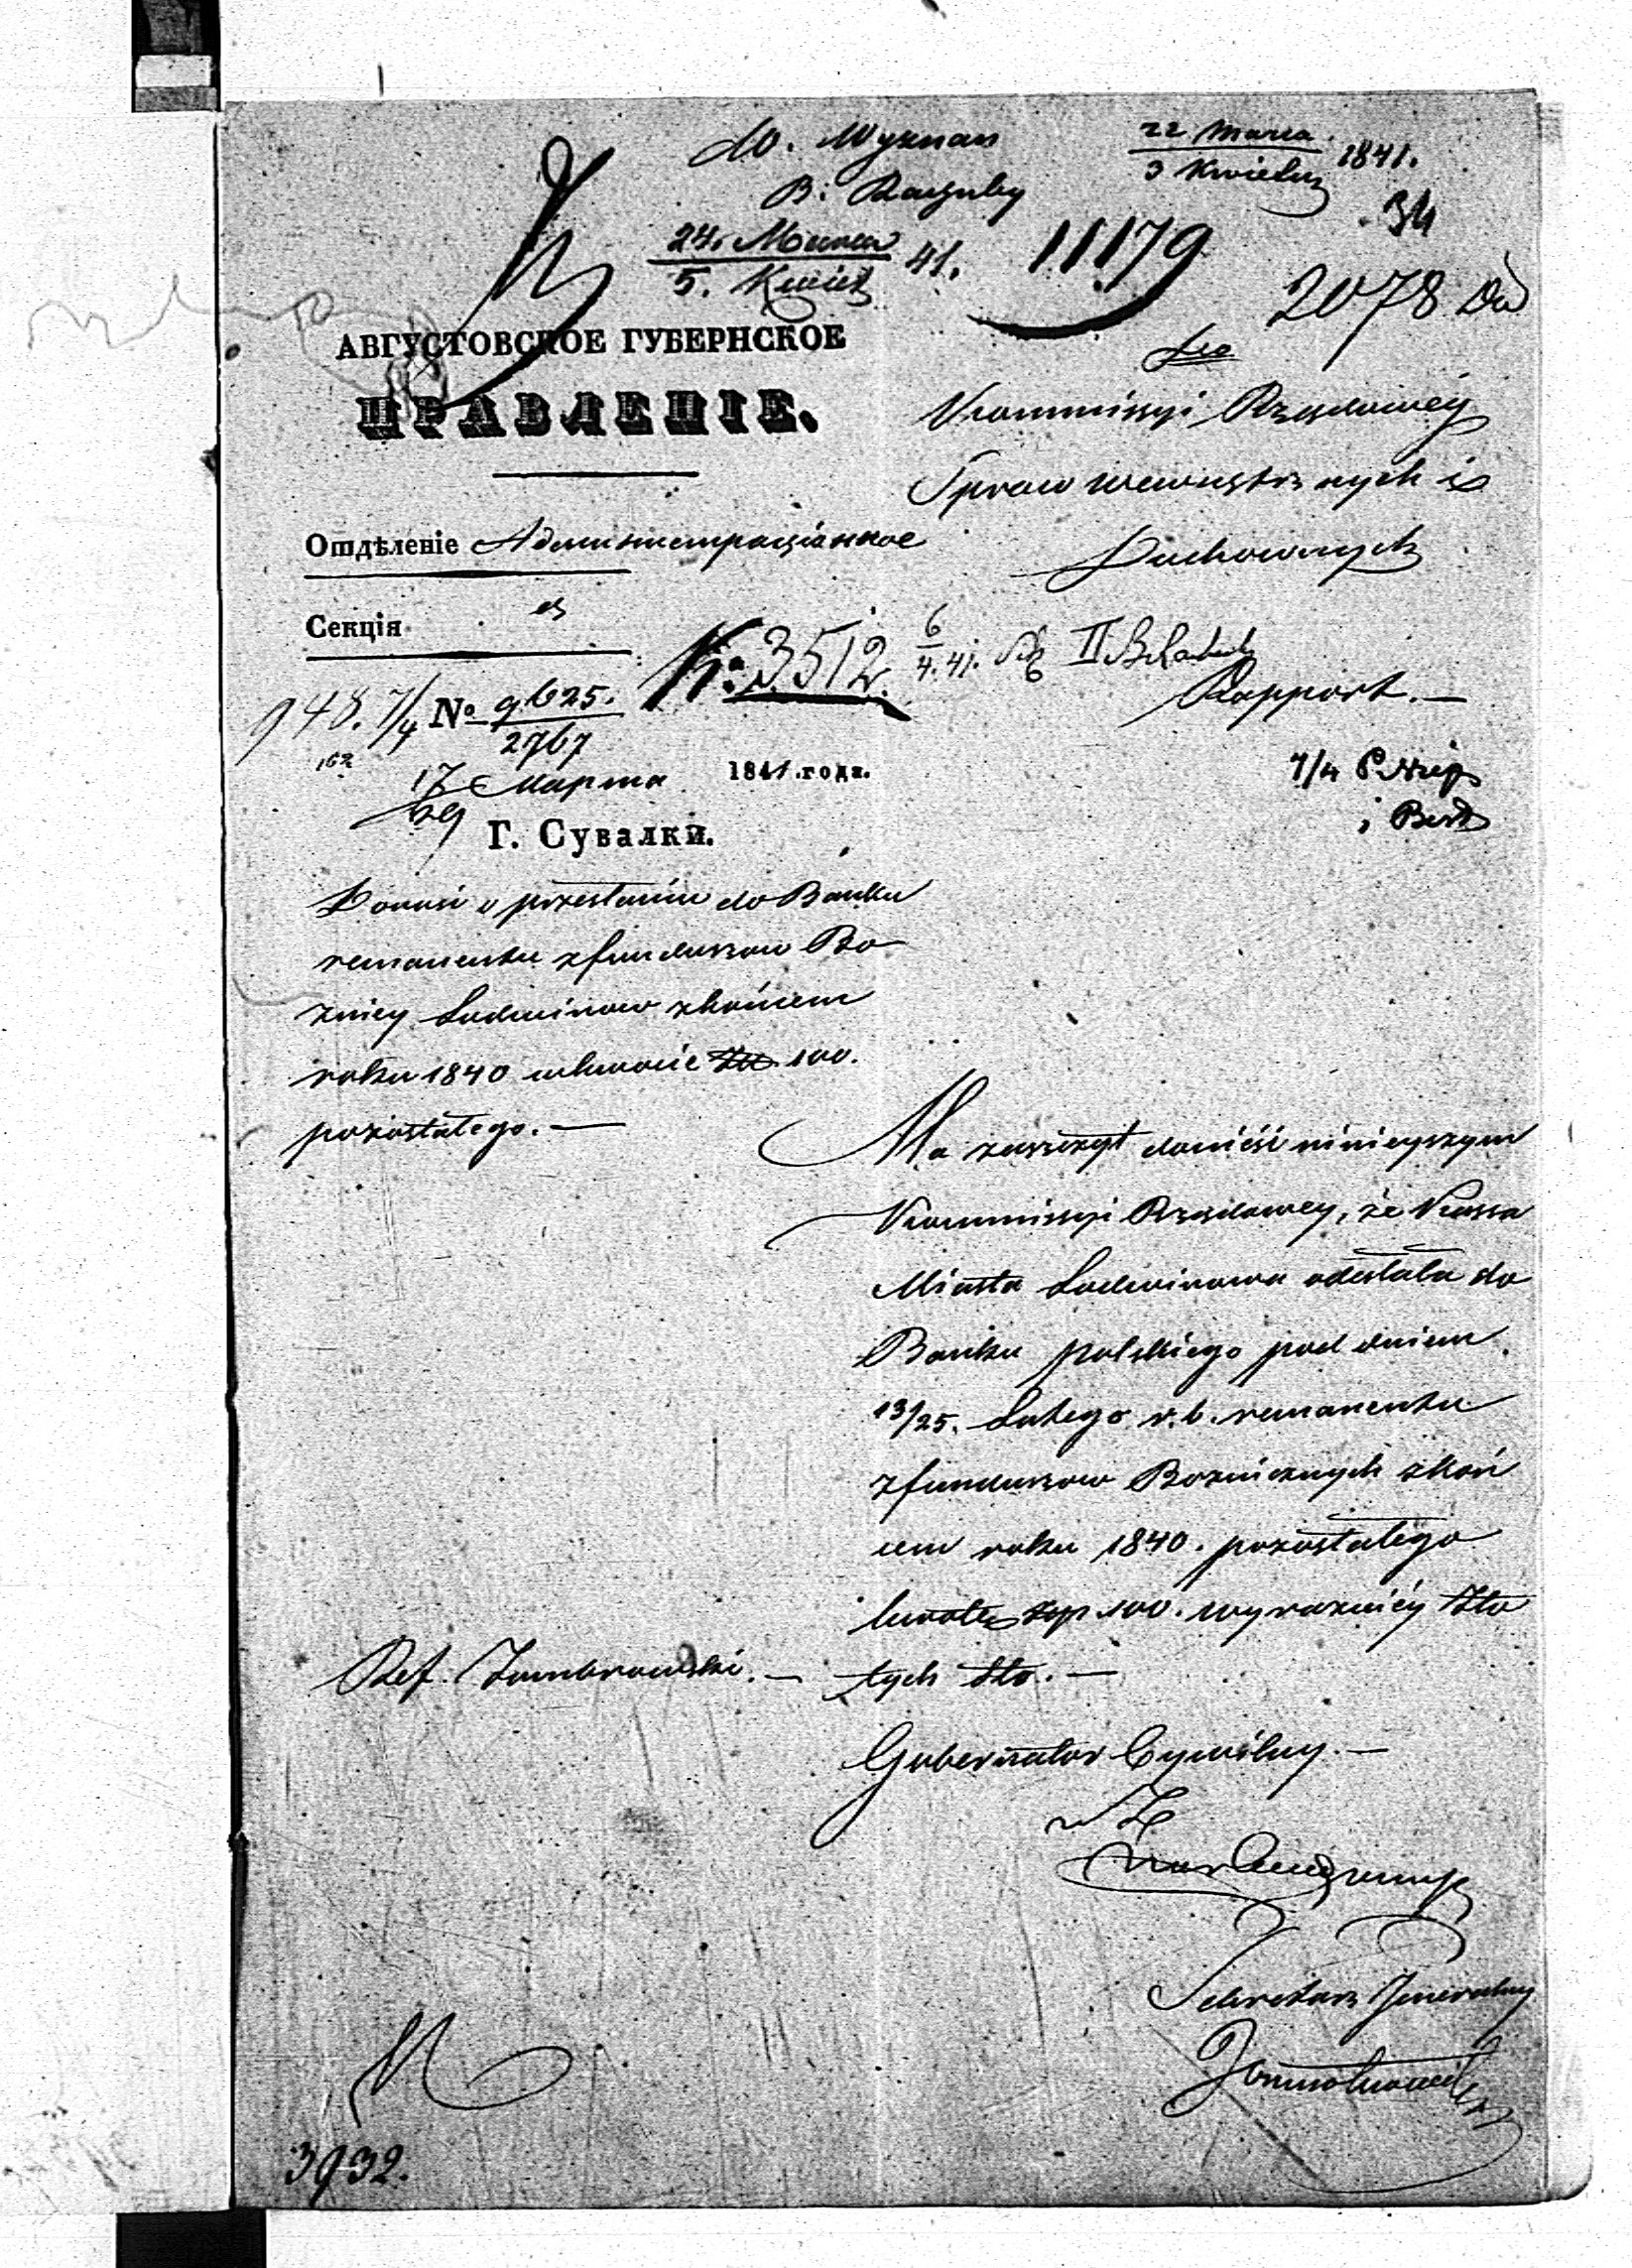 W. Wyznań
22 Marca
3 Kwietnia 1841.
24. Marca
5. Kwiet 41.
11179
34
2078
АВГУСТОВСКОЕ ГУБЕРНСКОЕ
ПРАВЛЕНІЕ.
Do
Kommissyi Rządowéy
Spraw wewnętrznych i
Duchownych
Rapport. —
Отдѣленіе Администраціонное
Секція
№ 3512
6
4. 41.
948. 7/4
№ 9625.
2767
17 Марта 1841 года.
29
Г. Сувалки.
7/4
Donosi o przesłaniu do Banku
remanentu z funduszow Bo-
żnicy Ludwinow z końcem
roku 1840 w kwocie Zł 100.
pozostałego. —
Ma zaszczyt donieść ninieyszym
Kommissyi Rządowey, że Kassa
Miasta Ludwinowa odesłała do
Banku polskiego pod dniem
13/25. Lutego r. b. remanentu
z funduszow Bożnicznych z koń
cem roku 1840. pozostałego
kwotę Złp 100. wyraźniéy Zło
tych Sto. —
Ref. Zambrowski. —
Gubernator Cywilny. —
w Z
Sekretarz Jeneralny
3932.